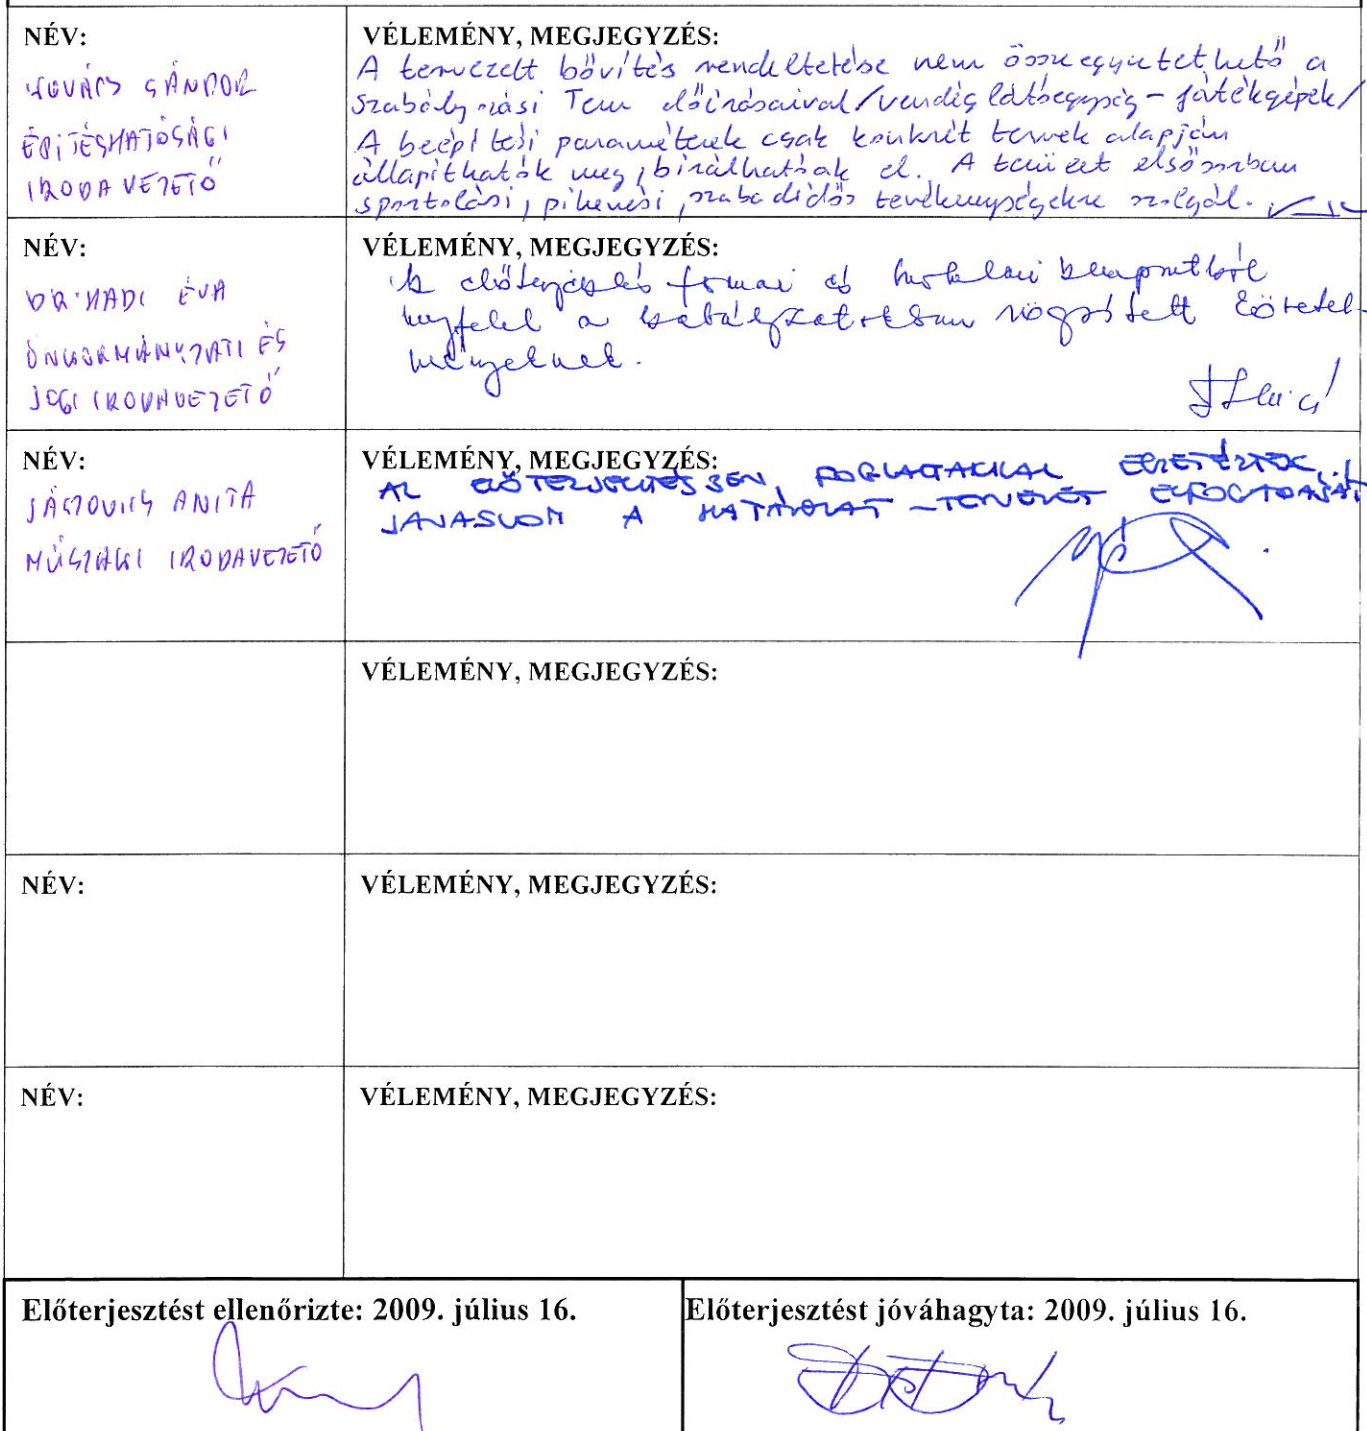 NÉV:
KOVÁCS SÁNDOR
ÉPÍTÉSHATÓSÁGI
IRODAVEZETŐ
VÉLEMÉNY, MEGJEGYZÉS:
A tervezett bővítés rendeltetése nem összeegyeztethető a
Szabályozási Terv előírásaival /vendéglátóegység - játékgépek/
A beépítési paraméterek csak konkrét tervek alapján
állapíthatók meg, bírálhatóak el. A terület elsősorban
sportolási, pihenési, szabadidős tevékenységekre szolgál.
NÉV:
DR. HADI ÉVA
ÖNKORMÁNYZATI ÉS
JOGI IRODAVEZETŐ
VÉLEMÉNY, MEGJEGYZÉS:
Az előterjesztés formai és tartalmi szempontból
megfelel a szabályzatokban rögzített követel-
ményeknek.
NÉV:
JÁSZOVICS ANITA
MŰSZAKI IRODAVEZETŐ
VÉLEMÉNY, MEGJEGYZÉS:
AZ ELŐTERJESZTÉSBEN FOGLALTAKKAL EGYETÉRTEK,
JAVASLOM A HATÁROZAT-TERVEZET ELFOGADÁSÁT
VÉLEMÉNY, MEGJEGYZÉS:
NÉV:
VÉLEMÉNY, MEGJEGYZÉS:
NÉV:
VÉLEMÉNY, MEGJEGYZÉS:
Előterjesztést ellenőrizte: 2009. július 16.
Előterjesztést jóváhagyta: 2009. július 16.